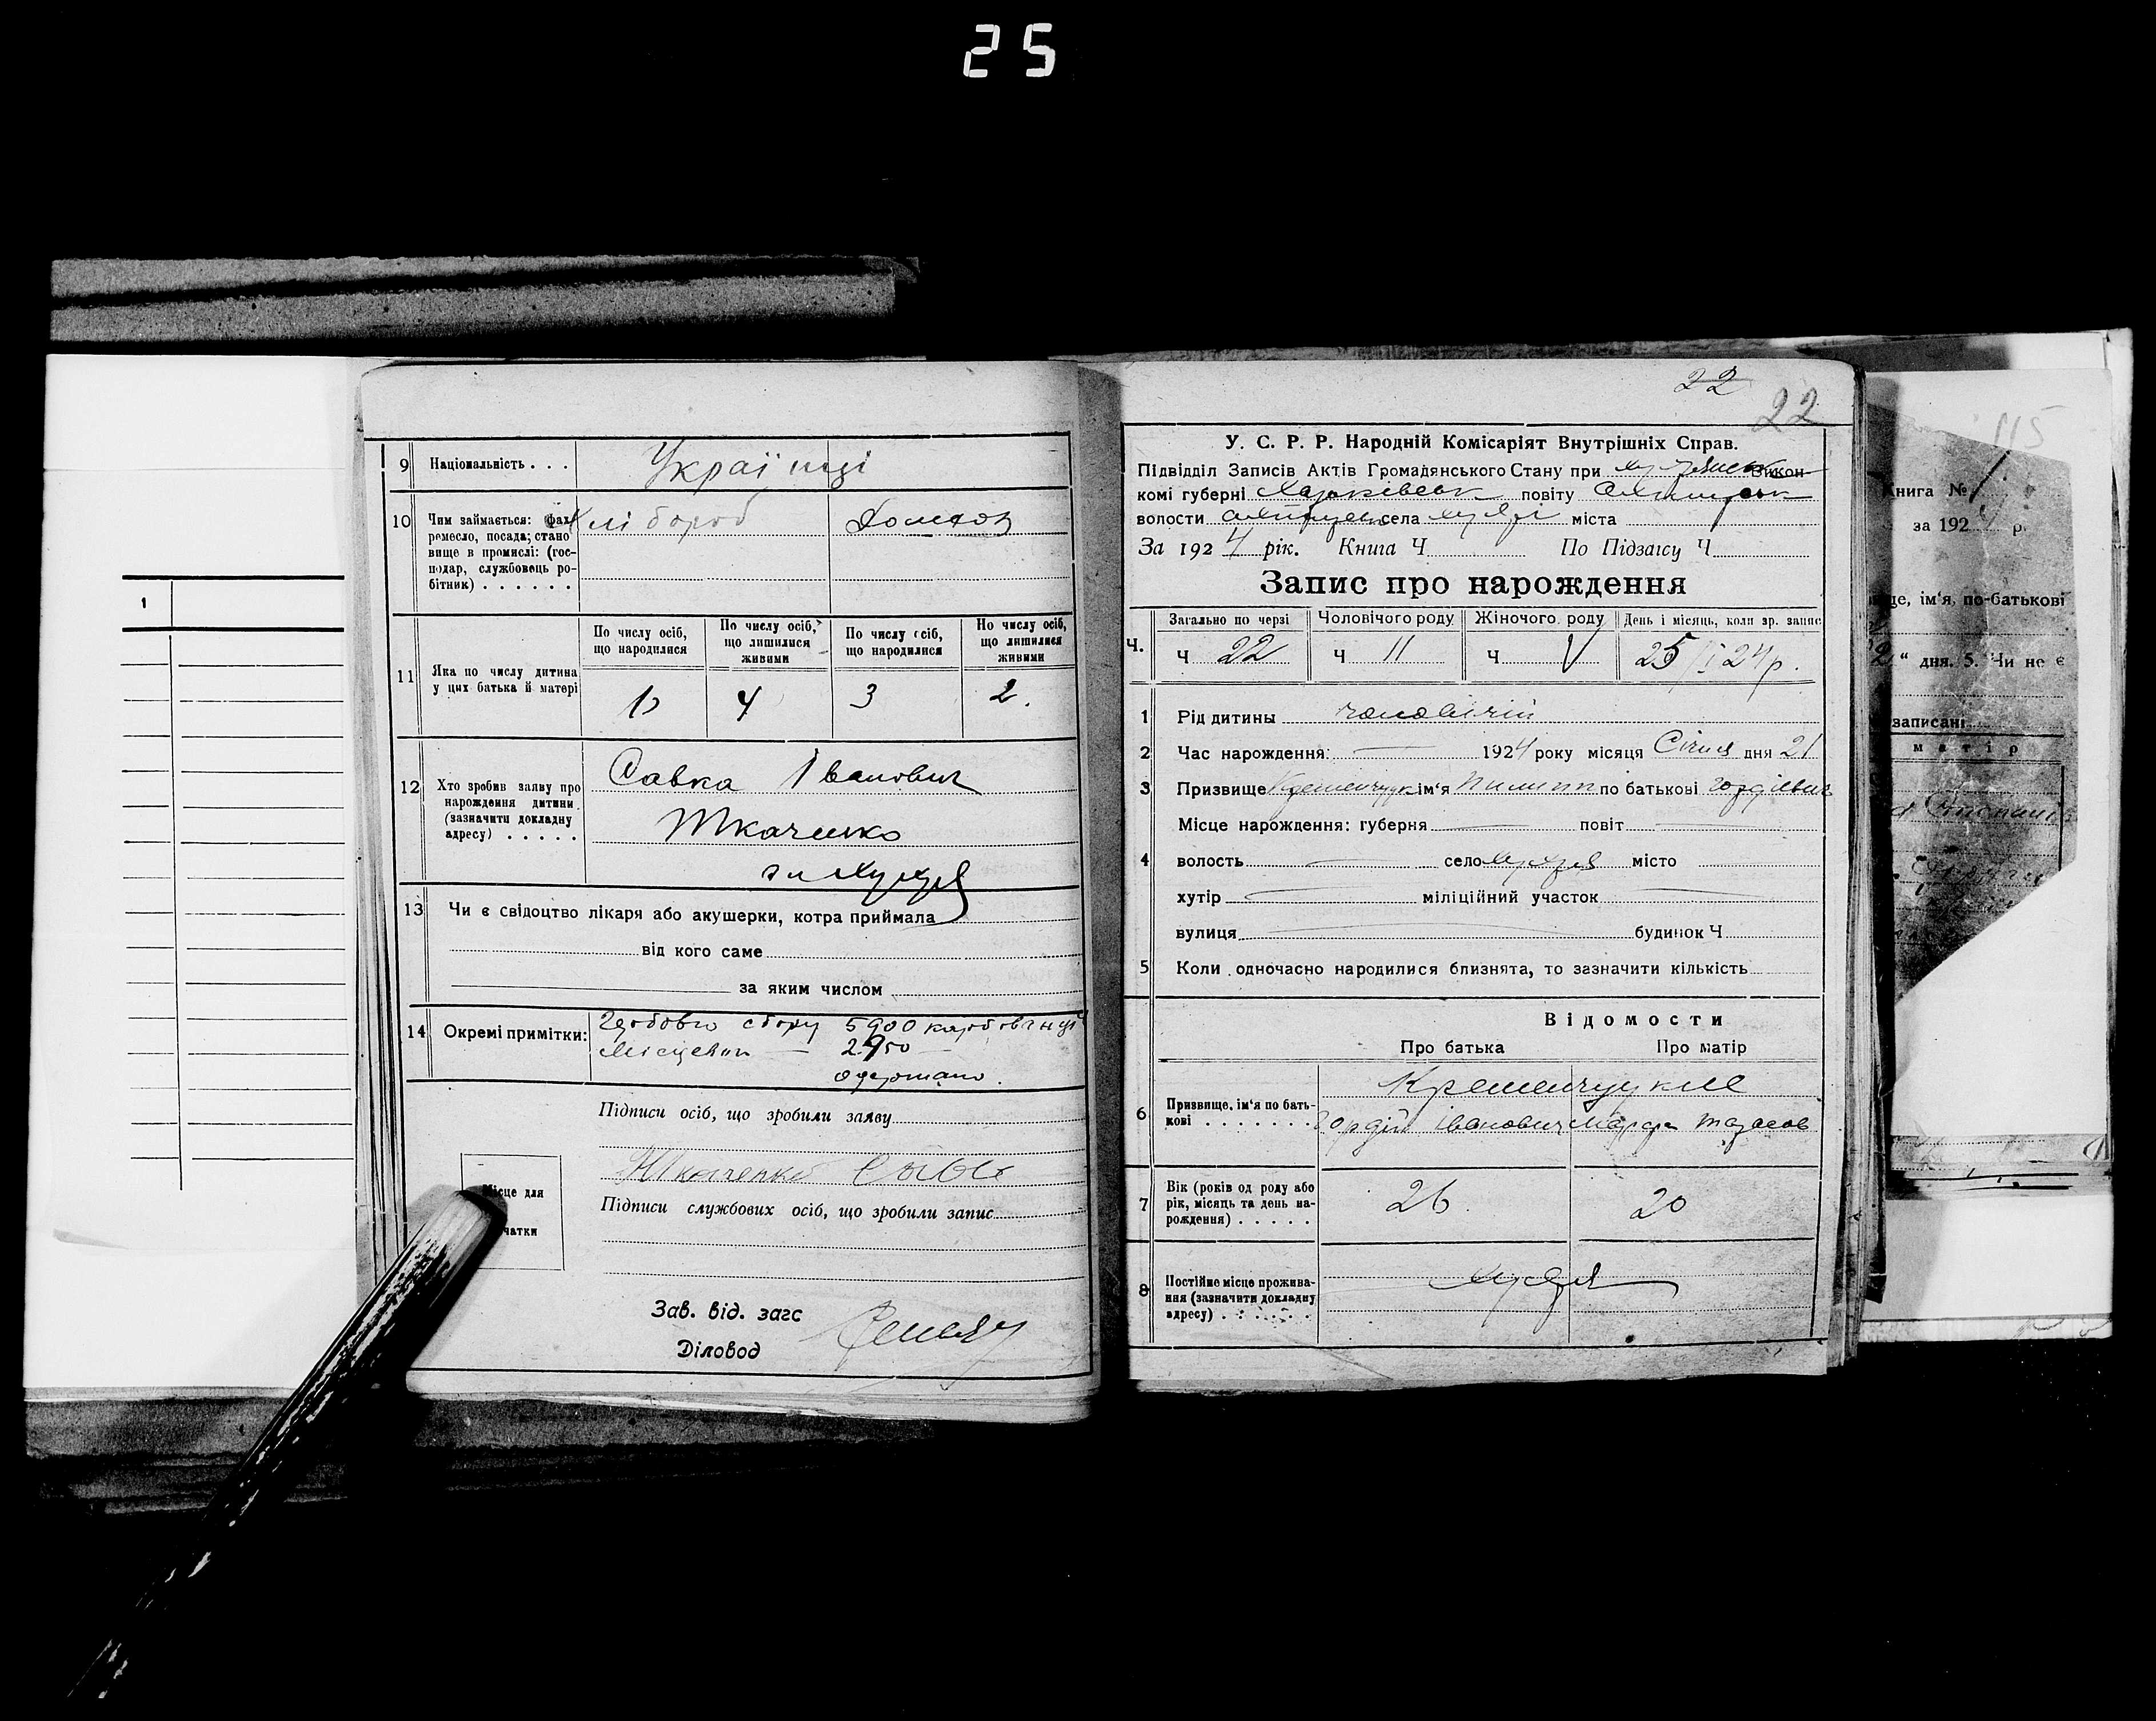 25
9 Національність . . . Українці
10 Чим займається: фах, Хлібороб Домгосп
ремесло, посада; стано
вище в промислі: (гос-
подар, службовець ро-
бітник) . . . . . .
11 Яка по числу дитина
у цих батька й матері
По числу осіб, що народилися
По числу осіб, що лишилися живими
По числу осіб, що народилися
По числу осіб, що лишилися живими
4 3 2.
12 Хто зробив заяву про
нарождення дитини
(зазначити докладну
адресу) . . . . .
Савка Іванович
Ткаченко
13 Чи є свідоцтво лікаря або акушерки, котра приймала
від кого саме
за яким числом
14 Окремі примітки: сбору 5900 карбованців
Місцевого — 2950 —
одержано.
Підписи осіб, що зробили заяву
Ткаченко Сава
Підписи службових осіб, що зробили запис
Місце для
чатки
Зав. від. загс
Діловод
22
22
У. С. Р. Р. Народній Комісаріят Внутрішніх Справ.
Підвідділ Записів Актів Громадянського Стану при Викон-
комі губерні Харківськ повіту Охтирськ
волости села міста
За 1924 рік. Книга Ч По Підзагсу Ч
Запис про нарождення
Ч. Загально по черзі Чоловічого роду Жіночого роду День і місяць, коли зр. запис
Ч 22 Ч 11 Ч V 25/I 24 р.
1 Рід дитины чоловічій
2 Час нарождення: — 1924 року місяця Січня дня 21
3 Призвище Кременчук ім'я Пилипп по батькові Гордієвич
Місце нарождення: губерня — повіт —
4 волость — село місто —
хутір — міліційний участок —
вулиця — будинок Ч
5 Коли одночасно народилися близнята, то зазначити кількість
Відомости
Про батька Про матір
6 Призвище, ім'я по бать-
кові . . . . . . .
Кременчуцкие
Гордій Іванович Марфа Тарасов
7 Вік (років од роду або
рік, місяць та день на-
рождення) . . . . .
26 20
8 Постійне місце прожива-
ння (зазначити докладну
адресу) . . . . . .
115
Книга №
за 192 р.
ім'я, по-батькові
“ дня. 5. Чи не є
записані
матір
1